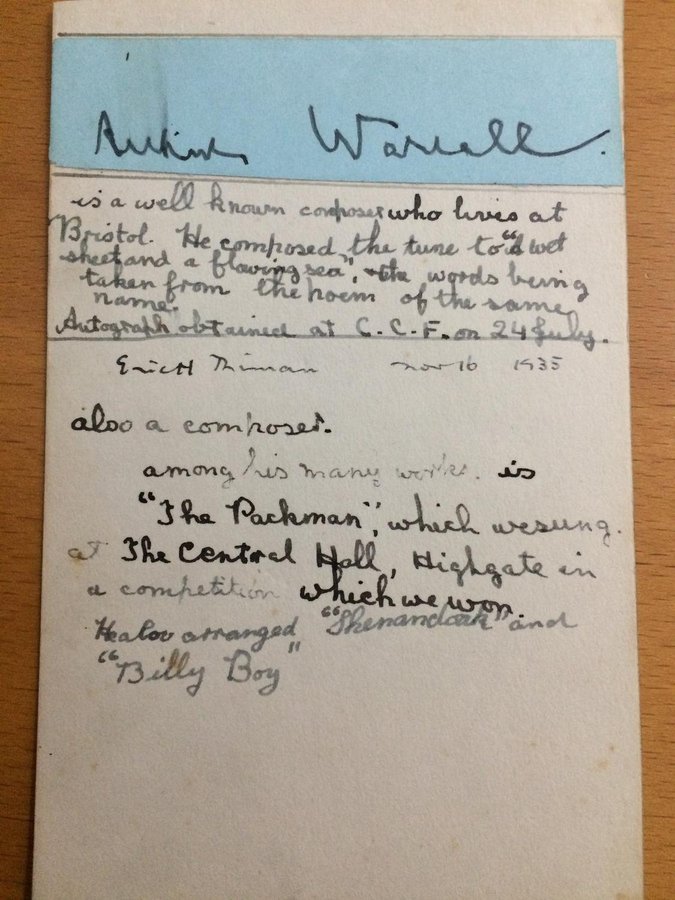 Arthur Warrell.
is a well known composer who lives at
Bristol. He composed the tune to "A wet
sheet and a flowing sea", the words being
taken from the poem of the same
name.
Autograph obtained at C.C.F. on 24 July.
Eric H Thiman nov 16 1935
also a composer.
among his many works. is
"The Packman", which we sung.
at The Central Hall, Highgate in
a competition which we won.
He also arranged "Shenandoah" and
"Billy Boy"